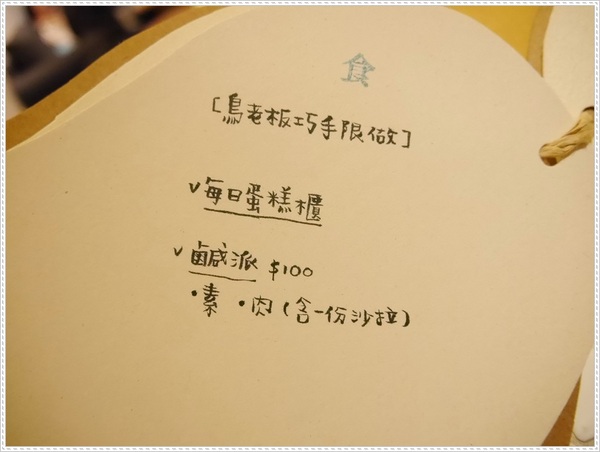 食
[鳥老板巧手限做]
v每日蛋糕櫃
v鹹派 $100
·素 ·肉(含一份沙拉)